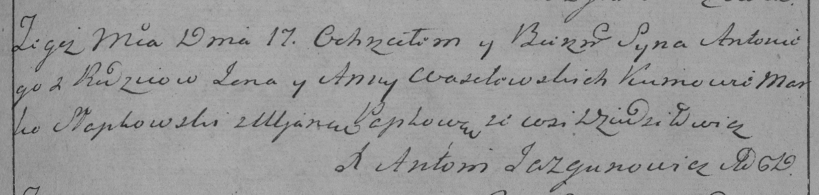 Tegoż Mca Dnia 17. Ochrzciłem y Bierzm Syna Antonie
go z Rodzicow Jana y Anny Wasilowskich Kumowie Mar
ko Słapkowski z Ulјaną Łapkową ze wsi
X Antoni Jazgunowicz